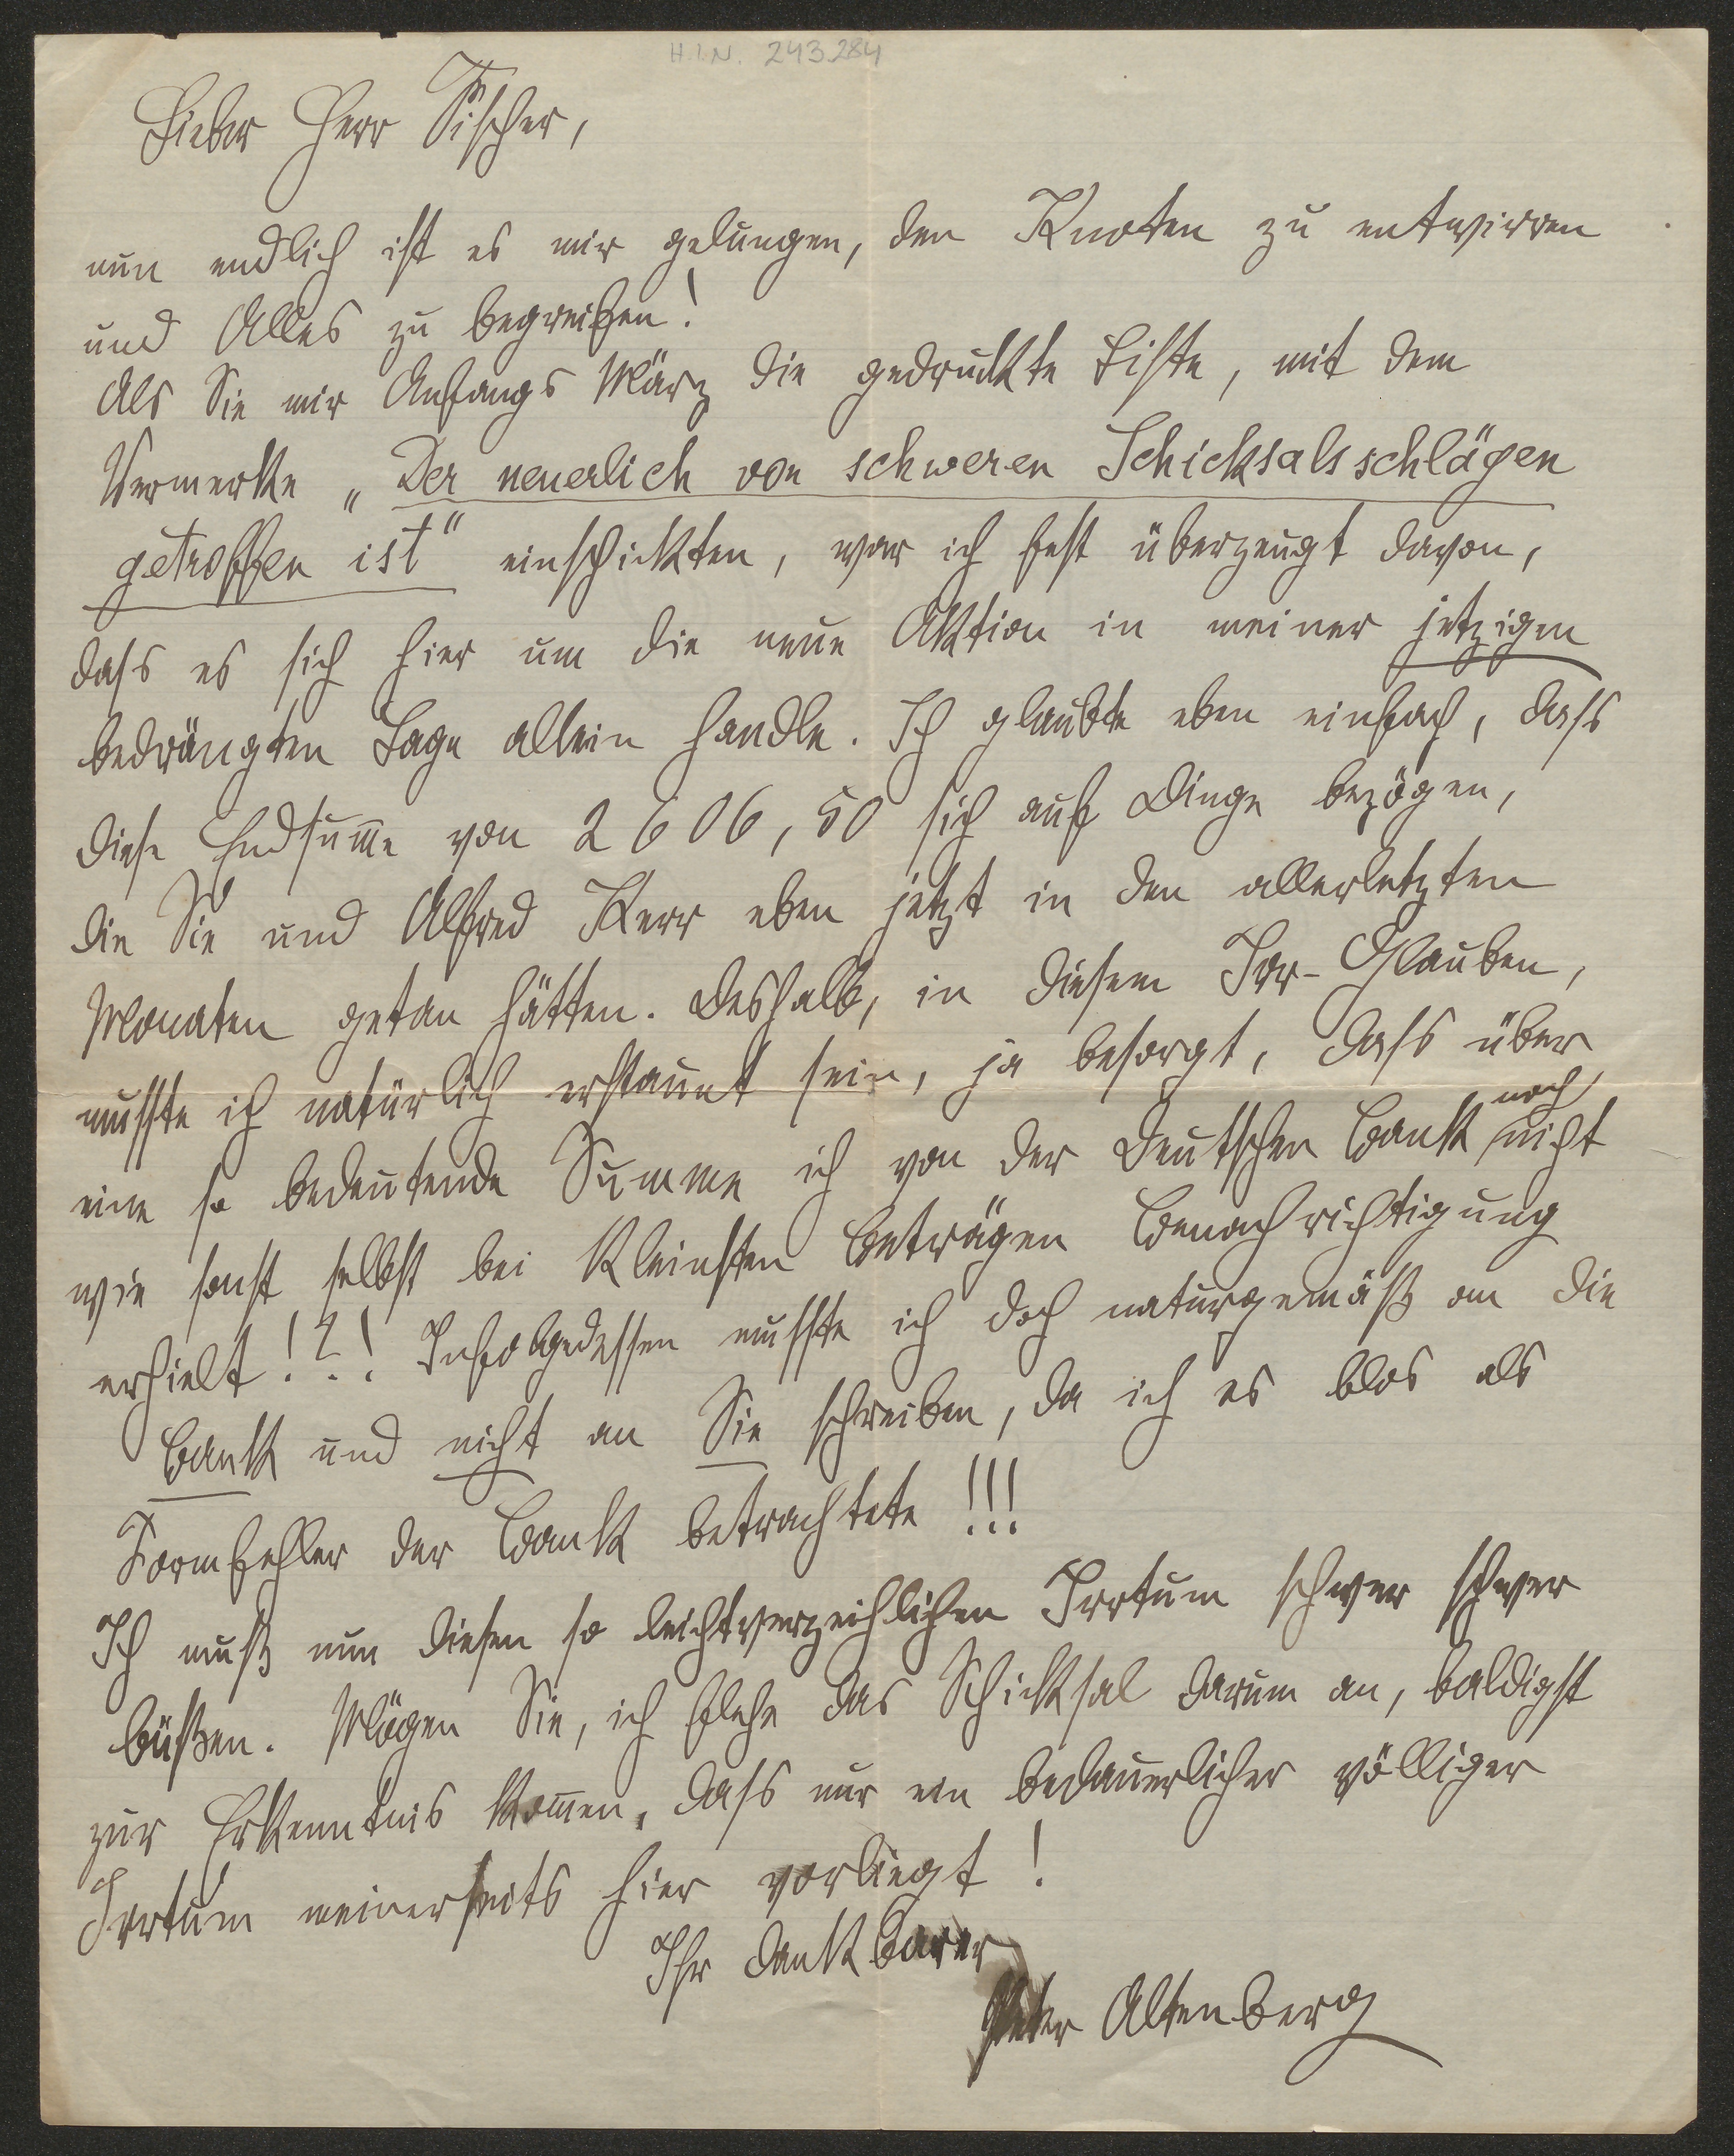 H.I.N. 243284
Lieber Herr Fischer,
nun endlich ist es mir gelungen, den Knoten zu entwirren
und Alles zu begreifen!
Als Sie mir Anfangs März die gedruckte Liste, mit dem
Vermerke „Der neuerlich von schweren Schicksalsschlägen
getroffen ist“ einschickten, war ich fest überzeugt davon,
dass es sich hier um die neue Aktion in meiner jetzigen
bedrängten Lage allein handle. Ich glaubte eben einfach, dass
diese Endsum̄e von 2606,50 sich auf Dinge bezögen,
die Sie und Alfred Kerr eben jetzt in den allerletzten
Monaten getan hätten. Deshalb, in diesem Irr-Glauben,
musste ich natürlich erstaunt sein, ja besorgt, dass über
eine so bedeutende Summe ich von der Deutschen Bank noch nicht
wie sonst selbst bei kleinsten Beträgen Benachrichtigung
erhielt!?! Infolgedessen musste ich doch naturgemäß an die
Bank und nicht an Sie schreiben, da ich es blos als
Formfehler der Bank betrachtete!!!
Ich muß nun diesen so leichtverzeihlichen Irrtum schwer schwer
büßen. Mögen Sie, ich flehe das Schicksal darum an, baldigst
zur Erkenntnis kom̄en, dass nur ein bedauerlicher völliger
Irrtum meinerseits hier vorliegt!
Ihr dankbarer
Peter Altenberg